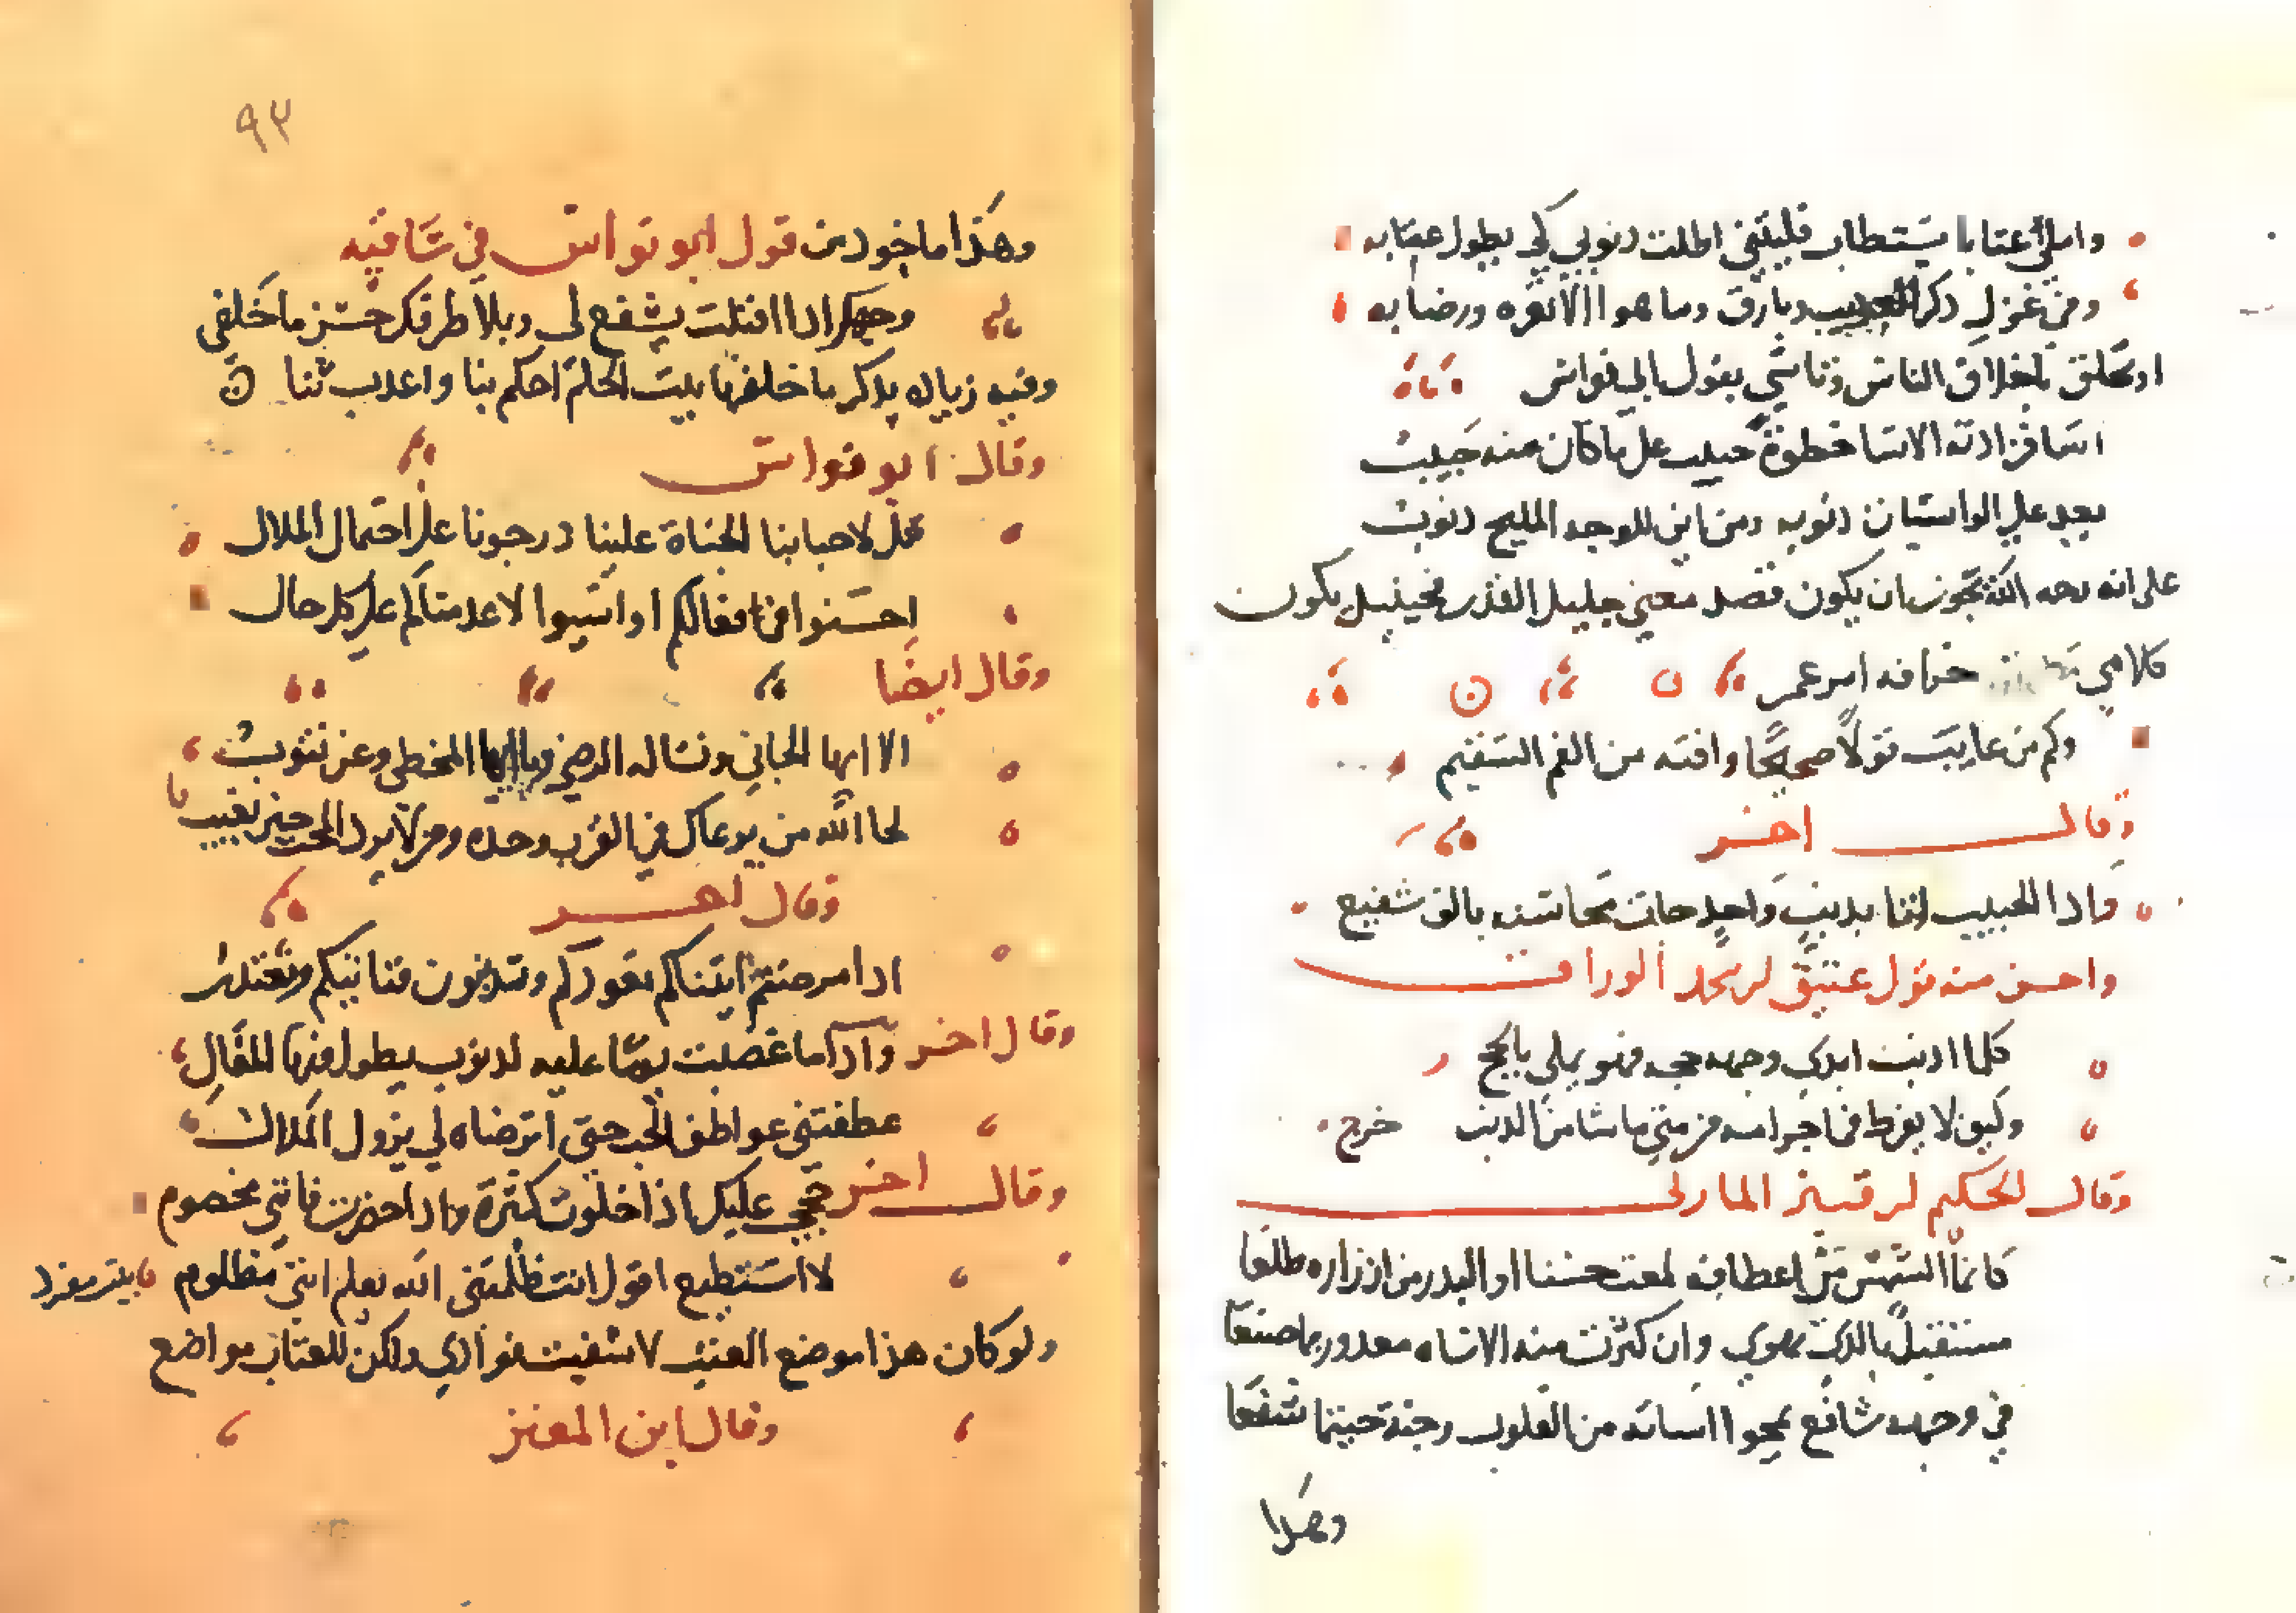 واملى عتابا يستطاب فليتني اطلت ذنوبي كي يطول عتابه
ومن غزل ذكر العذيب وبارق وما هو الا ثغره ورضابه
او تخلق باخلاق الناس وتاسي بقول ابي نواس
اسا فزادته الاسا حظوة حبيب على ما كان منه حبيب
يعد علي الواشيان ذنوبه ومن اين للوجه المليح ذنوب
على انه رحمه الله يجوز ان يكون قصد معني جليل القدر فحينيذ يكون
كلامي خرافه ام عمر
وكم من عايب قولا صحيحا وافته من الفهم السقيم
وقال اخر
واذا الحبيب اتى بذنب واحد جات محاسنه بالف شفيع
واحسن منه قول عتيق بن محمد الوراق
كلما اذنب ابدى وجهه حجه فهو ملي بالحجج
وكيف لا يفرط في اجرامه من متى ما شا من الذنب خرج
وقال الحكيم
كانما الشمس من اعطافه لمعت حسنا او البدر من ازراره طلعا
مستقبل بالذي يهوى وان كثرت منه الاساه معذور بما صنعا
في وجهه شافع يمحو اساته من القلوب وجيه حيثما شفعا
وهذا
٩٣
وهذا ماخوذ من قول ابو نواس في
وجهك اذا اقبلت يشفع لى وبلا طرفك حسن ما خلفي
وفيه زياده يذكر ما خلفها بيت احكم بنا واعذب ثنا
وقال ابو نواس
قل لاحبابنا الجناة علينا درجونا على احتمال الملال
احسنوا في فعالكم او اسيوا لا عدمناكم على كل حال
وقال ايضا
الا ايها الجاني ونساله الرضى ويا ايها المخطي وعن نتوب
لحا الله من يرعاك في القرب وحده ومن لا يود المحب حين تغيب
وقال اخر
اذا مرضتم اتيناكم نعودكم وتذنبون فناتيكم ونعتذر
وقال اخر واذا ما غضبت يوما عليه لذنوب يطول فيها المقال
عطفتني عواطف الحب حتى اترضاه لي يزول الملال
وقال اخر حججي عليك اذا خلوت كثيرة واذا حضرت فانني مخصوم
لا استطيع اقول انت ظلمتني الله يعلم انني مظلوم بيت مفرد
ولو كان هذا موضع العتب لاشتفيت فوادي ولكن للعتاب مواضع
وقال ابن المعتز